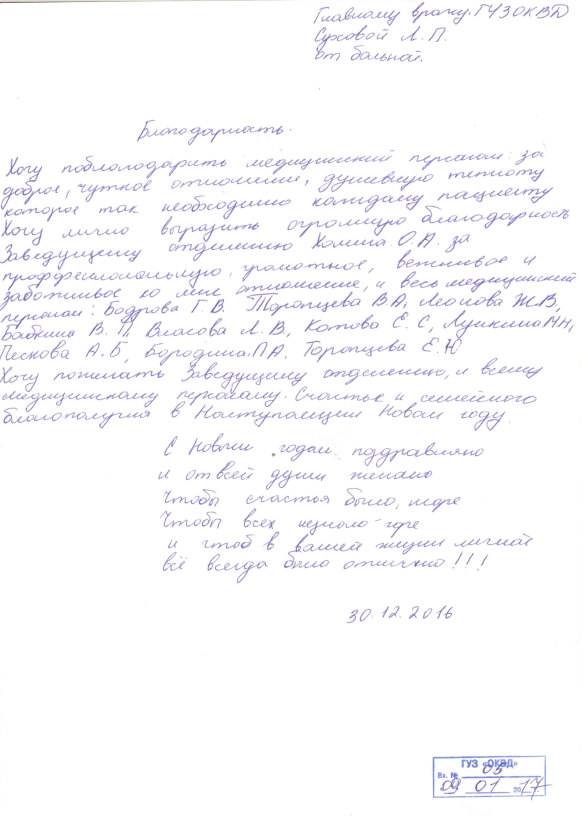 Главному врачу. ГУЗОКВД
Суховой Л. П.
от больной.
Благодарность.
Хочу поблагодарить медицинский персонал за
доброе, чуткое отношение, душевную теплоту
которое так необходимо каждому пациенту
Хочу лично выразить огромную благодарность
Заведущему отделению Хомина. О.А. за
проффессиональную, грамотное, вежливое и
заботливое ко мне отношение, и весь медицинский
персонал: Бодрова Г. В. Торопцева В.А, Леонова Ж.В,
Бабкина В. П, Власова Л. В, Котова Е. С, Лункина Н.Н,
Пескова А. Б, Бородина. П.А, Торопцева Е. Ю
Хочу пожелать Заведущему отделению, и всему
медицинскому персоналу. Счастье и семейного
благополучия в Наступающим Новом году.
С Новым годом поздравляю
и от всей души желаю
Чтобы счастья было, море
Чтобы всех изчезло горе
и чтоб в вашей жизни личной
всё всегда было отлично!!!
30.12.2016
ГУЗ «ОКВД»
Вх. № 05
09 01 2017